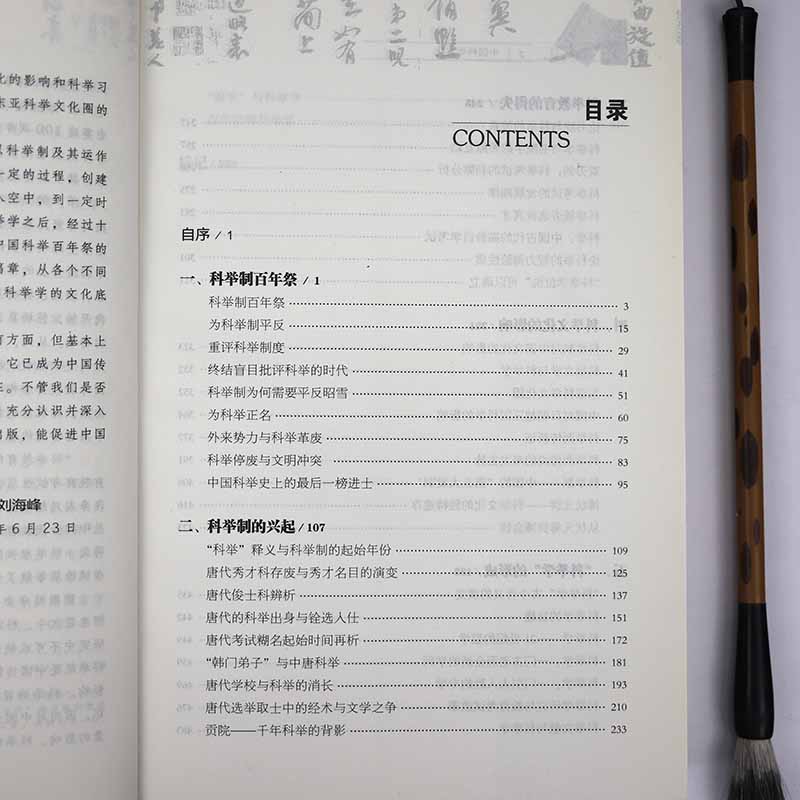 化的影响和科举习
东亚科举文化圈的
科举制及其运作
一定的过程，创建
入空中，到一定时
举学之后，经过十
中国科举百年祭的
篇章，从各个不同
科举学的文化底
有方面，但基本上
它已成为中国传
在。不管我们是否
充分认识并深入
出版，能促进中国
刘海峰
年6月23日
目录
CONTENTS
自序 / 1
一、科举制百年祭 / 1
科举制百年祭 3
为科举制平反 15
重评科举制度 29
终结盲目批评科举的时代 41
科举制为何需要平反昭雪 51
为科举正名 60
外来势力与科举革废 75
科举停废与文明冲突 83
中国科举史上的最后一榜进士 95
二、科举制的兴起 / 107
“科举”释义与科举制的起始年份 109
唐代秀才科存废与秀才名目的演变 125
唐代俊士科辨析 137
唐代的科举出身与铨选入仕 151
唐代考试糊名起始时间再析 172
“韩门弟子”与中唐科举 181
唐代学校与科举的消长 193
唐代选举取士中的经术与文学之争 210
贡院——千年科举的背影 233